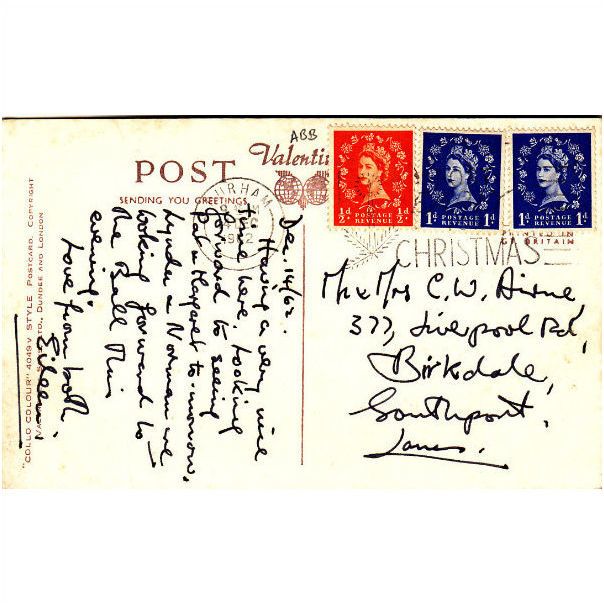 ABB
POST
Valentin
SENDING YOU GREETINGS
DURHAM
"COLLO COLOUR" 4049V STYLE POSTCARD. COPYRIGHT
LTD., DUNDEE AND LONDON
½d POSTAGE REVENUE ½d
1d POSTAGE REVENUE 1d
1d POSTAGE REVENUE 1d
PRINTED IN
BRITAIN
CHRISTMAS
Dec. 14/62.
Having a very nice
time here. Looking
forward to seeing
Pat & Margaret to-morrow.
Lynda & Norman we
looking forward to
the Ball this
evening.
Love from both
Eileen
Mr & Mrs C.W. Airne,
377, Liverpool Rd,
Birkdale,
Southport,
Lancs.